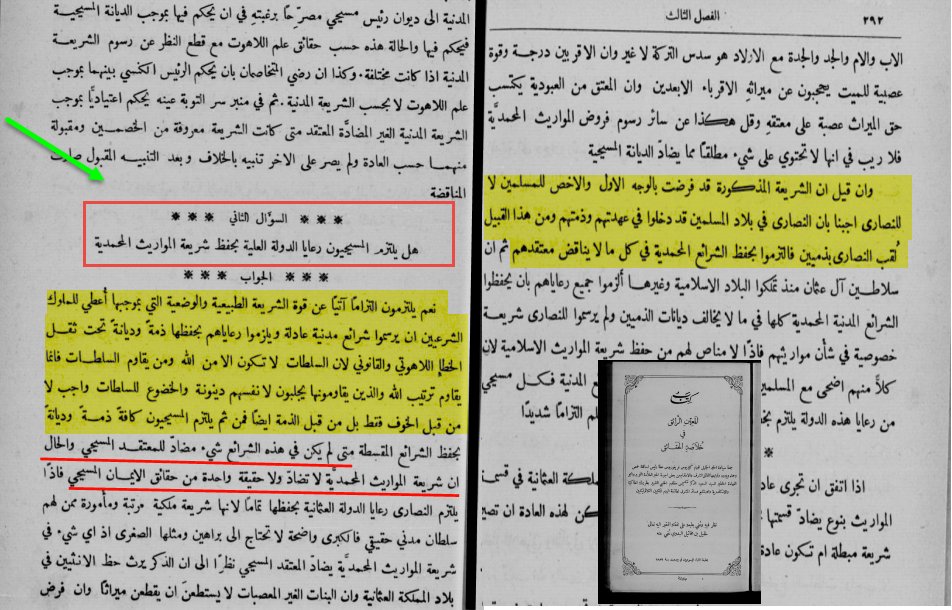 المدنية الى ديوان رئيس مسيحي مصرّحًا برغبتهِ في ان يحكم فيها بموجب الديانة المسيحية
فيحكم فيها والحالة هذه حسب حقائق علم اللاهوت مع قطع النظر عن رسوم الشريعة
المدنية اذا كانت مختلفة. وكذا ان رضي المتخاصمان بان يحكم الرئيس الكنسي بينهما بموجب
علم اللاهوت لا بحسب الشريعة المدنية. ثم في منبر سر التوبة عينه يحكم اعتياديًا بموجب
الشريعة المدنية الغير المضادَّة المعتقد متى كانت الشريعة معروفة من الخصمين ومقبولة
منهما حسب العادة ولم يصر على الاخر تنبيه بالخلاف وبعد التنبيه المقبول صارت
المناقضة
*** السؤال الثاني ***
هل يلتزم المسيحيون رعايا الدولة العلية بحفظ شريعة المواريث المحمدية
*** الجواب ***
نعم يلتزمون التزامًا آتيًا عن قوة الشريعة الطبيعية والوضعية التي بموجبها أُعطي للملوك
الشرعيين ان يرسموا شرائع مدنية عادلة ويلزموا رعاياهم بحفظها ذمةً وديانةً تحت ثقل
الخطاء اللاهوتي والقانوني لان السلطات لا تكون الا من الله ومن يقاوم السلطات فانما
يقاوم ترتيب الله والذين يقاومونها يجلبون لانفسهم دينونة والخضوع للسلطات واجب لا
من قبل الخوف فقط بل من قبل الذمة ايضًا فمن ثم يلتزم المسيحيون كافةً ذمةً وديانةً
بحفظ الشرائع المقسطة متى لم يكن في هذه الشرائع شيء مضادّ للمعتقد المسيحي والحال
ان شريعة المواريث المحمديَّة لا تضادّ ولا حقيقة واحدة من حقائق الايمان المسيحي فاذًا
يلتزم النصارى رعايا الدولة العثمانية بحفظها تمامًا لانها شريعة ملكية مرتبة ومأمورة ممن لهم
سلطان مدني حقيقي فالكبرى واضحة لا تحتاج الى براهين ومثلها الصغرى اذ اي شيء في
شريعة المواريث المحمديَّة يضادّ المعتقد المسيحي نظرًا الى ان الذكر يرث حظ الانثيين في
بلاد المملكة العثمانية وان البنات الغير المعصبات لا يستطعنَ ان يقطعن ميراثًا وان فرض
٢٩٢
الفصل الثالث
الاب والام والجد والجدة مع الاولاد هو سدس التركة لا غير وان الاقربين درجة وقوة
عصبية للميت يحجبون عن ميراثهِ الاقرباء الابعدين وان المعتق من العبودية يكتسب
حق الميراث عصبة على معتقهِ وقل هكذا عن سائر رسوم فروض المواريث المحمديَّة
فلا ريب في انها لا تحتوي على شيء مطلقًا مما يضادّ الديانة المسيحية
وان قيل ان الشريعة المذكورة قد فرضت بالوجه الاول والاخص للمسلمين لا
للنصارى اجبنا بان النصارى في بلاد المسلمين قد دخلوا في عهدتهم وذمتهم ومن هذا القبيل
لُقب النصارى بذميين فالتزموا بحفظ الشرائع المحمدية في كل ما لا يناقض معتقدهم ثم ان
سلاطين آل عثمان منذ تملكوا البلاد الاسلامية وغيرها ألزموا جميع رعاياهم بان يحفظوا
الشرائع المدنية المحمدية كلها في ما لا يخالف ديانات الذميين ولم يرسموا للنصارى شريعة
خصوصية في شأن مواريثهم فاذًا لا مناص لهم من حفظ شريعة المواريث الاسلامية لان
كلاًّ منهم اضحى مع المسلمين المدنية فكل مسيحي
من رعايا هذه الدولة يلتزم التزامًا شديدًا
*
اذا اتفق ان تجرى عادة المملكة العثمانية في قسمة
المواريث بنوع يضادّ قسمتها يمكن لهذه العادة ان تصير
شريعة مبطلة ام تكون عادة
كتاب
في
خلاصة